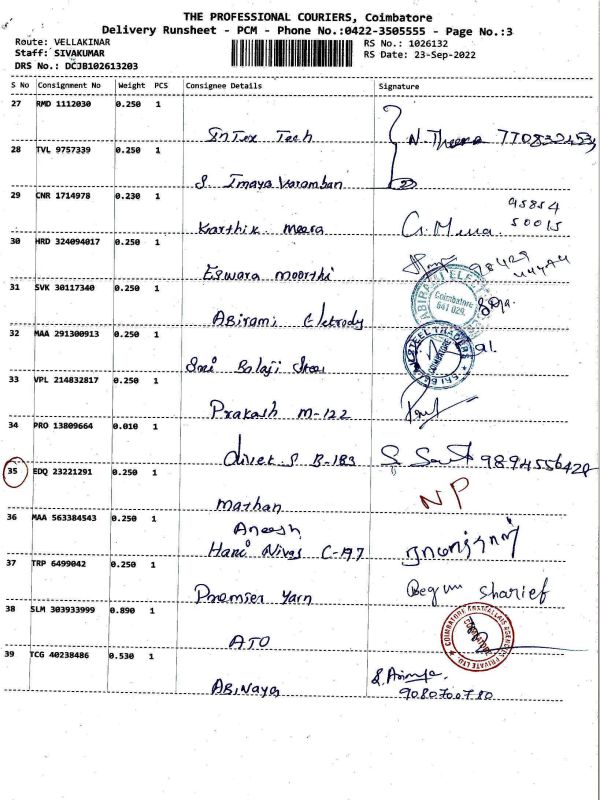 THE PROFESSIONAL COURIERS, Coimbatore
Delivery Runsheet - PCM - Phone No.:0422-3505555 - Page No.:3
Route: VELLAKINAR
Staff: SIVAKUMAR
DRS No.: DCJB102613203
RS No.: 1026132
RS Date: 23-Sep-2022
S No Consignment No Weight PCS Consignee Details Signature
27 RMD 1112030 0.250 1
InTex Tech
28 TVL 9757339 0.250 1
S. Imaya Varamban
29 CNR 1714978 0.230 1
Karthik Meera
95854
50015
30 HRD 324094017 0.250 1
Eswara moorthi
31 SVK 30117340 0.250 1
ABIRAMI ELECT
Coimbatore
641 029.
Abirami Eletrody
32 MAA 291300913 0.250 1
STEEL TRADERS
COIMBATORE
Sri Balaji Steel
33 VPL 214832817 0.250 1
Prakash M-122
34 PRO 13809664 0.010 1
B-183
9894556428
35 EDQ 23221291 0.250 1
NP
Mathan
36 MAA 563384543 0.250 1
Aneesh
Hari Nivas C-197
37 TRP 6499042 0.250 1
Begum Sharief
Premier Yarn
38 SLM 303933999 0.890 1
COIMBATORE
PRIVATE LTD.
ATO
39 TCG 40238486 0.530 1
ABiNaya
9080700780